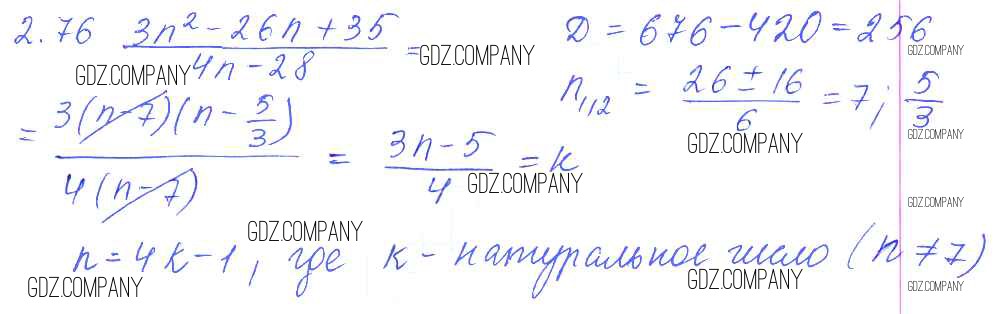 2.76 (3n² - 26n + 35)/(4n - 28) =
D = 676 - 420 = 256
n₁,₂ = (26 ± 16)/6 = 7; 5/3
= 3(n - 7)(n - 5/3)/4(n - 7) = (3n - 5)/4 = k
n = 4k - 1, где k - натуральное число (n ≠ 7)
GDZ.COMPANY
GDZ.COMPANY
GDZ.COMPANY
GDZ.COMPANY
GDZ.COMPANY
GDZ.COMPANY
GDZ.COMPANY
GDZ.COMPANY
GDZ.COMPANY
GDZ.COMPANY
GDZ.COMPANY
GDZ.COMPANY